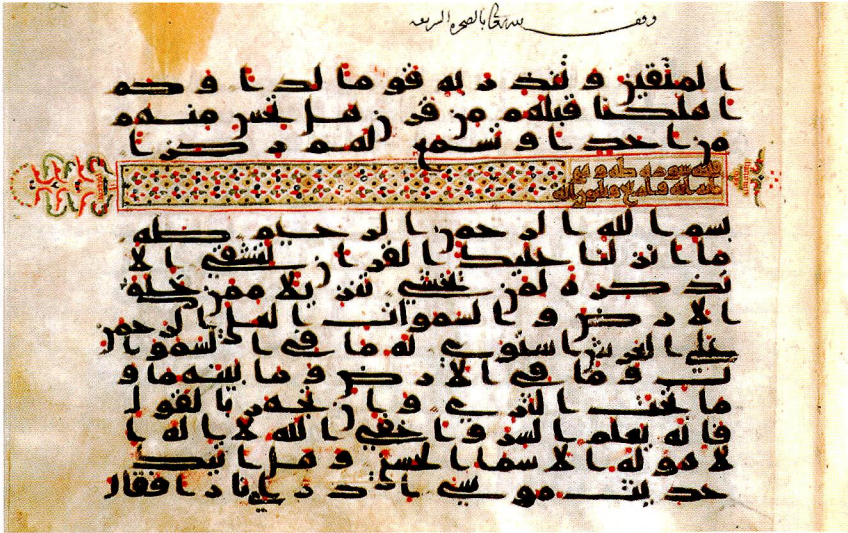 وقف بالصخرة الشريفة
المتقين وتنذر به قوما لدا وكم
اهلكنا قبلهم من قرن هل تحس منهم
من احد او تسمع لهم ركزا
سورة طه وهي
مائة وثلثون اية
بسم الله الرحمن الرحيم طه
ما انزلنا عليك القران لتشقى الا
تذكرة لمن يخشى تنزيلا ممن خلق
الارض والسموات العلى الرحمن
على العرش استوى له ما في السموا
ت وما في الارض وما بينهما و
ما تحت الثرى وان تجهر بالقول
فانه يعلم السر واخفى الله لا اله ا
لا هو له الاسما الحسنى وهل اتيك
حديث موسى اذ را نارا فقال